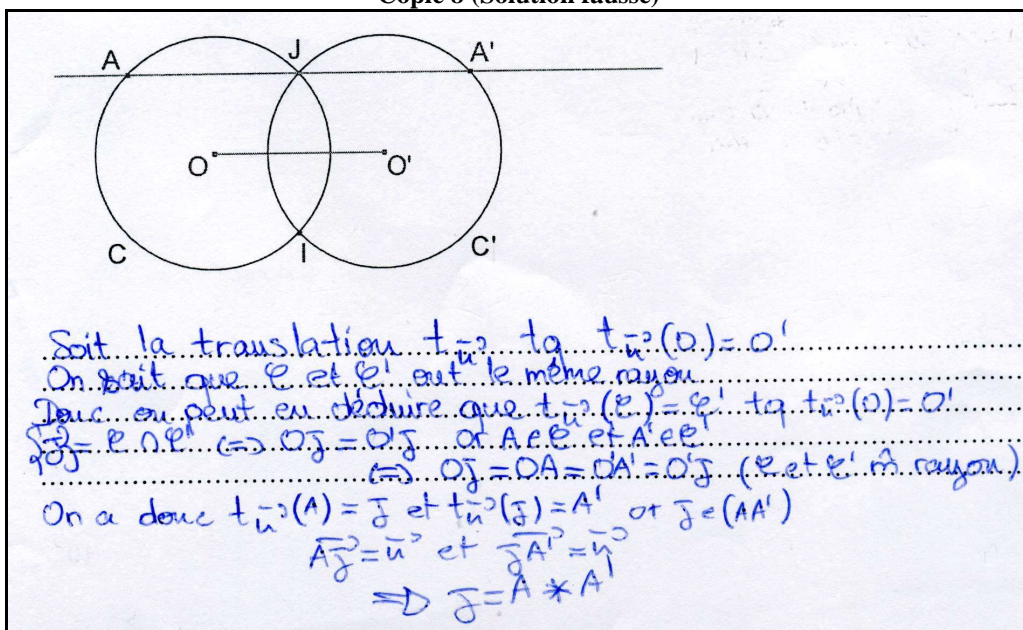 Copie 8 (Solution fausse)
A J A'
O O'
C I C'
Soit la translation t_u⃗ tq t_u⃗(O) = O'
On sait que 𝒞 et 𝒞' ont le même rayon
Donc on peut en déduire que t_u⃗(𝒞) = 𝒞' tq t_u⃗(O) = O'
= 𝒞 ∩ 𝒞' <=> OJ = O'J or A ∈ 𝒞 et A' ∈ 𝒞'
<=> OJ = OA = O'A' = O'J (𝒞 et 𝒞' m̂ rayon)
On a donc t_u⃗(A) = J et t_u⃗(J) = A' or J ∈ (AA')
AJ⃗ = u⃗ et JA'⃗ = u⃗
=> J = A * A'